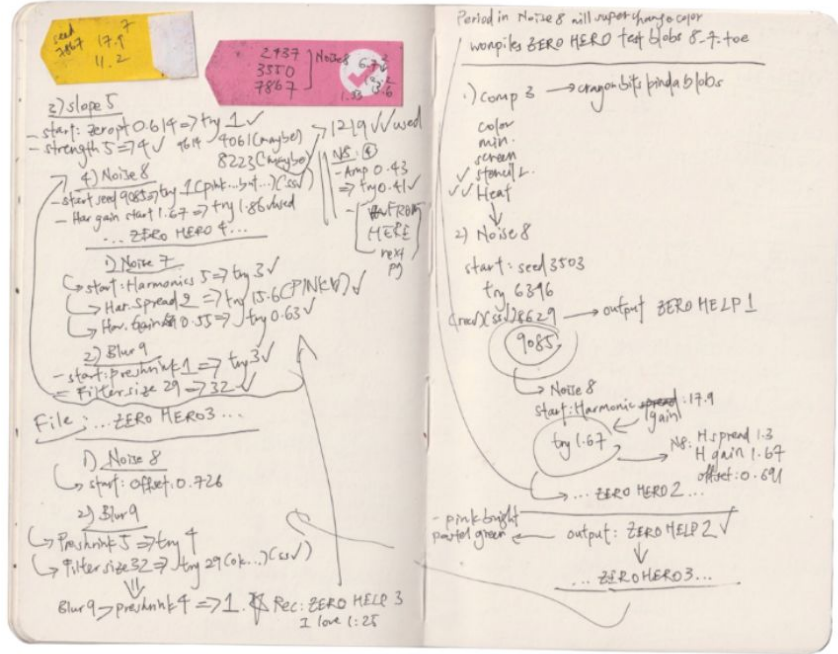 seed 7
7867 17.9
11.2
2937
3550
7867
Noise8
3) slope 5
- start: zeropt 0.614 => try 1 ✓
- strength 5 => 4 ✓
9614 4061 (maybe)
8223 (maybe)
→ 1219 ✓✓ used
4) Noise 8
- start seed 9085 => try 1 (pink...but...) (ss✓)
- Har gain start 1.67 => try 1.86 ✓used
N8: ④
- Amp 0.43
=> try 0.41 ✓
- FROM
HERE
next
pg
... ZERO HERO 4 ...
1) Noise 7
↳ start: Harmonics 5 => try 3 ✓
↳ Har. Spread 2 => try 15.6 (PINK!!) ✓
↳ Har. Gain 0.55 => try 0.63 ✓
2) Blur 9
- start: preshrink 1 => try 3 ✓
= Filter size 29 => 32 ✓
File: ... ZERO HERO3 ...
1) Noise 8
↳ start: offset: 0.726
2) Blur 9
↳ Preshrink 5 => try 4
↳ Filter size 32 => try 29 (ok...) (ss✓)
Blur 9 → preshrink 4 => 1.
Rec: ZERO HELP 3
I love 1:25
Period in Noize 8 will super change color
ZERO HERO test blobs 8_7.toe
1) comp 3 →
color
min.
screen
✓ stencil L.
✓✓ Heat
2) Noise 8
start: seed 3503
try 6396
(ss✓) 28629 → output ZERO HELP 1
9085
↳ Noise 8
start: Harmonic spread: 17.9
gain
try 1.67
N8: H spread 1.3
H gain 1.67
offset: 0.691
→ ... ZERO HERO 2 ...
- pink bright
pastel green ← output: ZERO HELP 2 ✓
... ZERO HERO3 ...